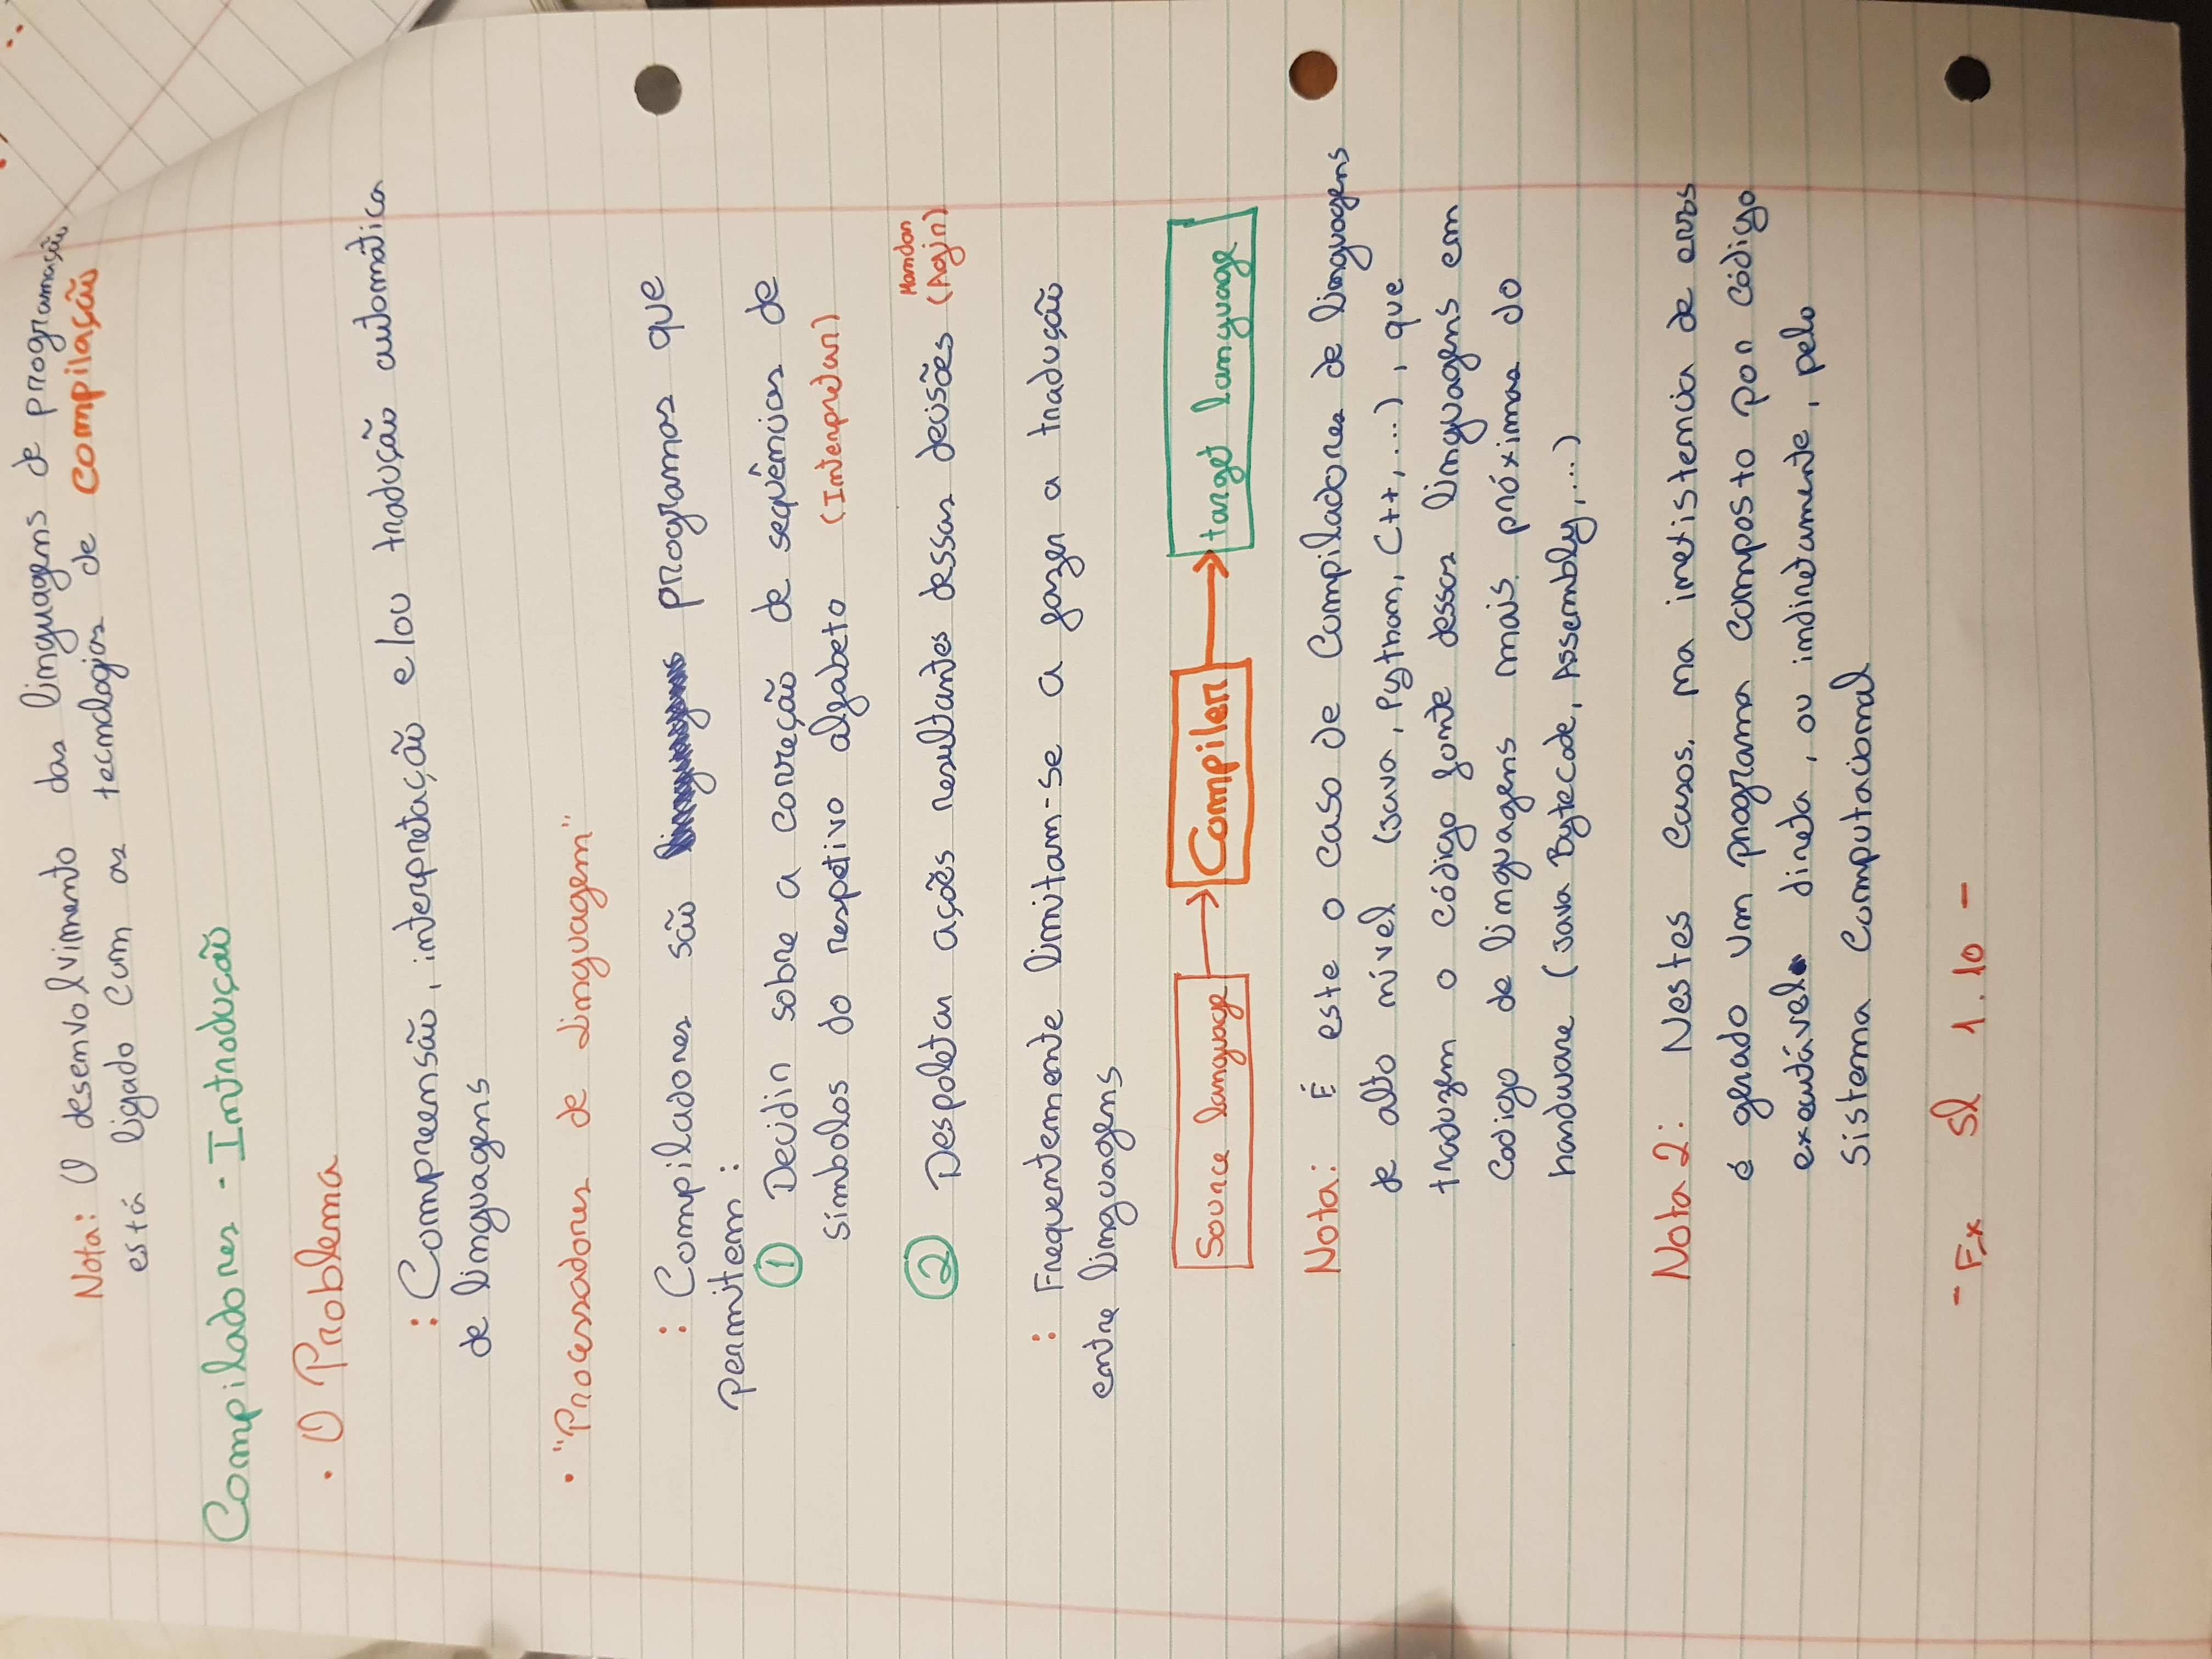 Nota: O desenvolvimento das linguagens de programação
está ligado com as tecnologias de compilação
Compiladores - Introdução
· O Problema
: Compreensão, interpretação e/ou tradução automática
de linguagens
· "Processadores de Linguagem"
: Compiladores são programas que
permitem :
1 Decidir sobre a correção de sequências de
símbolos do respetivo alfabeto (Interpretar)
Mandar
2 Despoletar ações resultantes dessas decisões (Agir)
: Frequentemente limitam-se a fazer a tradução
entre linguagens
Source language → Compiler → target language
Nota: É este o caso de Compiladores de linguagens
de alto nível (Java, Python, C++, ...), que
traduzem o código fonte dessas linguagens em
Codigo de linguagens mais próximas do
hardware (Java Bytecode, Assembly, ...)
Nota 2: Nestes casos. na inexistencia de erros
é gerado um programa composto por código
executável direta, ou indiretamente, pelo
sistema computacional
- Ex sl 1.10 -